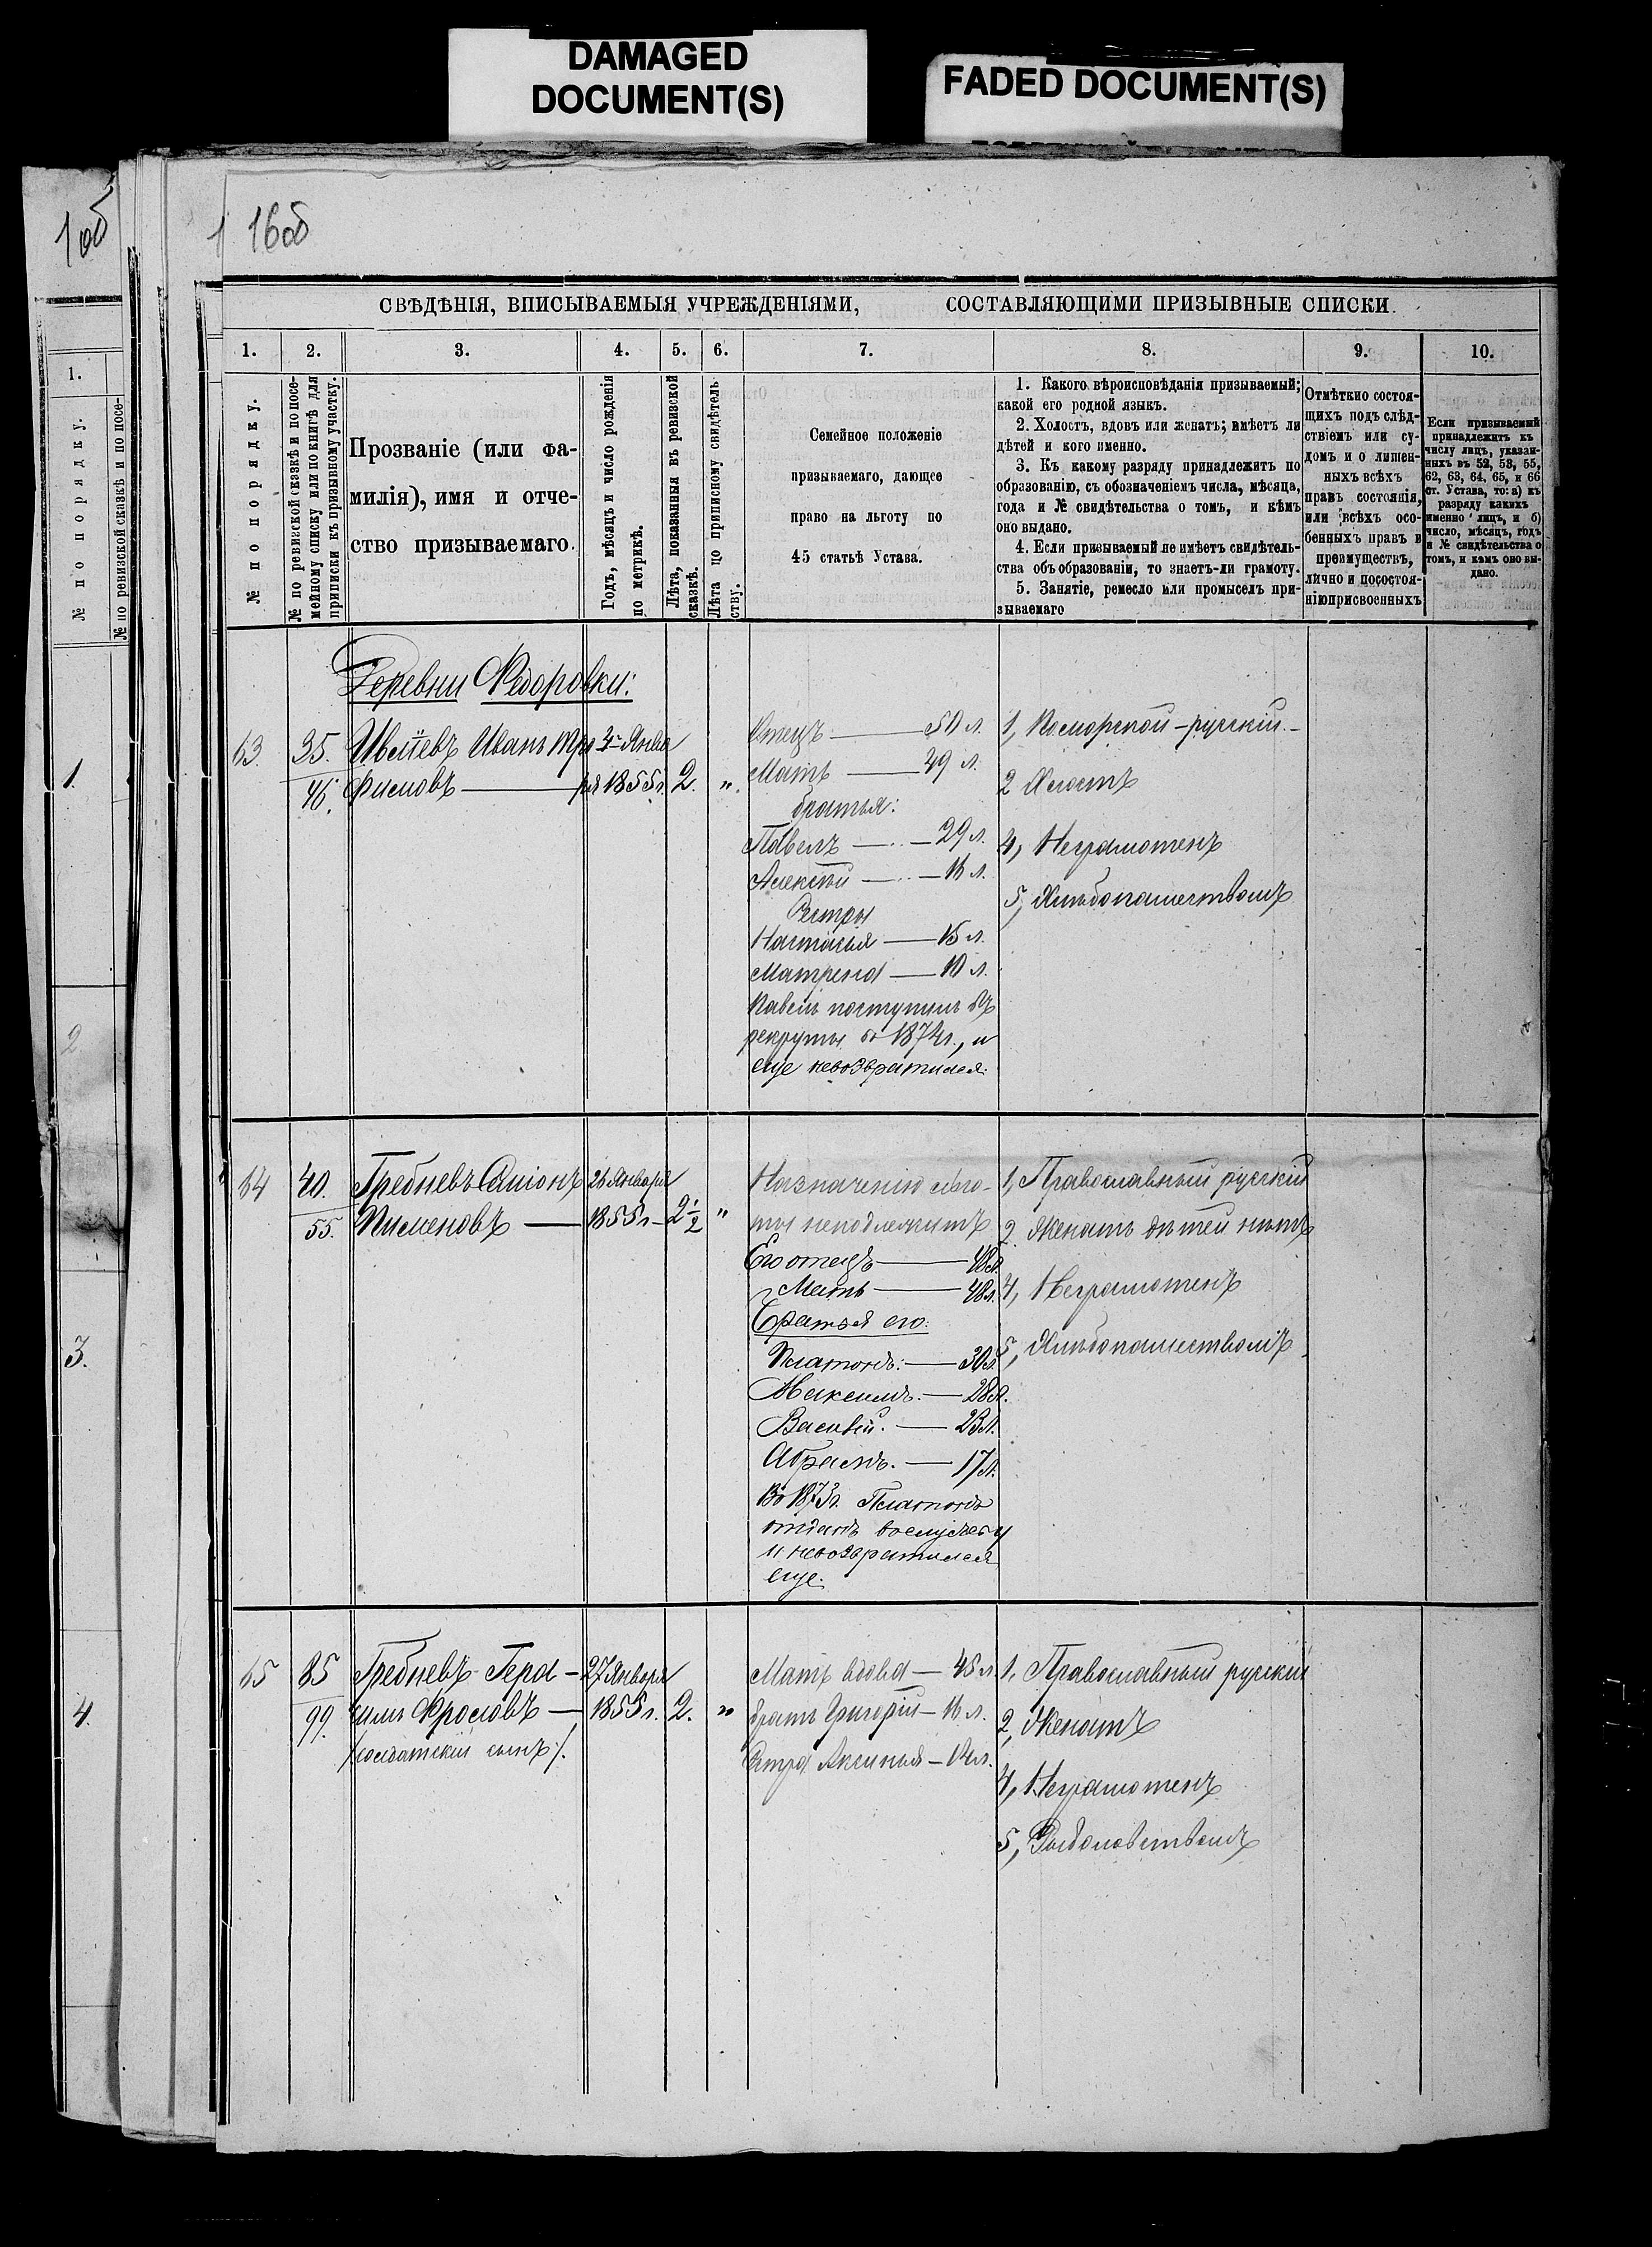 DAMAGED
DOCUMENT(S)
FADED DOCUMENT(S)
1об
16об
СВѢДѢНІЯ, ВПИСЫВАЕМЫЯ УЧРЕЖДЕНІЯМИ, СОСТАВЛЯЮЩИМИ ПРИЗЫВНЫЕ СПИСКИ.
1. 2. 3. 4. 5. 6. 7. 8. 9. 10.
№ по порядку.
№ по ревизской сказкѣ и по посе-
мейному списку или по книгѣ для
приписки къ призывному участку.
Прозваніе (или фа-
милія), имя и отче-
ство призываемаго.
Годъ, мѣсяцъ и число рожденія
по метрикѣ.
Лѣта, показанныя въ ревизской
сказкѣ.
Лѣта по приписному свидѣтель-
ству.
Семейное положеніе
призываемаго, дающее
право на льготу по
45 статьѣ Устава.
1. Какого вѣроисповѣданія призываемый;
какой его родной языкъ.
2. Холостъ, вдовъ или женатъ; имѣетъ ли
дѣтей и кого именно.
3. Къ какому разряду принадлежитъ по
образованію, съ обозначеніемъ числа, мѣсяца,
года и № свидѣтельства о томъ, и кѣмъ
оно выдано.
4. Если призываемый не имѣетъ свидѣтель-
ства объ образованіи, то знаетъ-ли грамоту.
5. Занятіе, ремесло или промыселъ при-
зываемаго
Отмѣтки о состоя-
щихъ подъ слѣд-
ствіемъ или су-
домъ и о лишен-
ныхъ всѣхъ
правъ состоянія,
или всѣхъ осо-
бенныхъ правъ и
преимуществъ,
лично и по состоя-
нію присвоенныхъ
Если призываемый
принадлежитъ къ
числу лицъ, указан-
ныхъ въ 52, 53, 55,
62, 63, 64, 65, и 66
ст. Устава, то: а) къ
разряду какихъ
именно лицъ, и б)
число, мѣсяцъ, годъ
и № свидѣтельства о
томъ, и кѣмъ оно вы-
дано.
1.
№ по порядку.
№ по ревизской сказкѣ и по посе-
1.
2
3.
4.
Деревни Ѳедоровки:
63. 35. Иванъ Тро
46. фимовъ
Янва
ря 1855 г. 2. "
Отецъ — 50 л.
Мать — 49 л.
братья:
Павелъ — 29 л.
Алексѣй — 16 л.
Сестры
Настасья — 15 л.
Матрена — 10 л.
Павелъ поступилъ въ
рекруты въ 1874г., и
еще невозвратился.
1, Поморской - русскій. -
2 Холостъ
4, Неграмотенъ
5, Хлѣбопашествомъ
64 40. Гребневъ Самсонъ 26 Января
55. Пименовъ — 1855 г. "
Назначенію льго-
ты неподлежитъ
Его отецъ — 48 л.
Мать — 48 л.
Братья его:
Платонъ. — 30 л.
Максимъ. — 28 л.
Василій. — 23 л.
Абрамъ. — 17 л.
Во 1873г. Платонъ
отданъ вослужбу
и невозвратился
еще.
1, Православный русскій
2. Женатъ дѣтей нѣтъ
4, Неграмотенъ
5, Хлѣбопашествомъ
65 85 Гребневъ Гера- 27 Января
99. симъ Фроловъ — 1855 г. 2. "
/солдатскій сынъ/.
Мать вдова — 45 л.
братъ Григорій — 16 л.
Сестра Аксинья — 14 л.
1, Православный русскій
2, Женатъ
4, Неграмотенъ
5, Рыболовствомъ